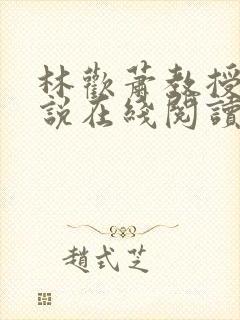 林歡蕭教授
說在綫閱讀
趙式芝